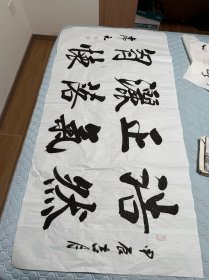 甲辰吉月
浩然
正氣
灑落
胸懷